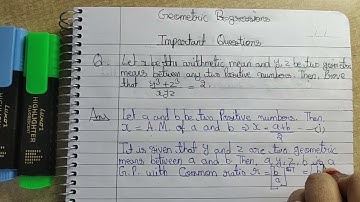 Geometric Progressions
Important Questions
Q. Let x be the arithmetic mean and y, z be two geometric
means between any two positive numbers. Then, Prove
that y³+z³/xyz = 2.
Ans Let a and b be two Positive numbers. Then,
x = A.M. of a and b ⇒ x = a+b/2 —(i)
It is given that y and z are two geometric
means between a and b. Then, a, y, z, b is a
G.P. with Common ratio r =
HIGHLIGHTER